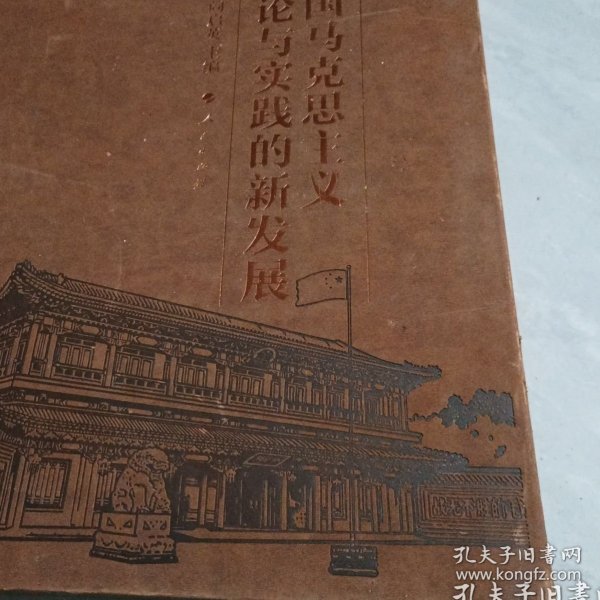 国马克思主义
论与实践的新发展
主编
人民出版社
孔夫子旧書网
www.kongfz.com
孔夫子旧書网